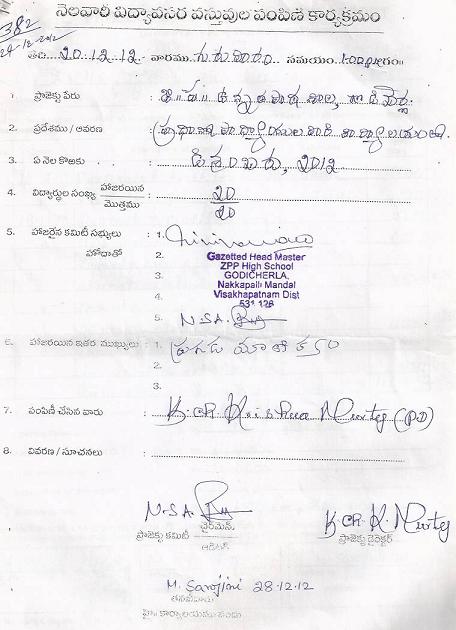 నెలవారీ విద్యావసర వస్తువుల పంపిణీ కార్యక్రమం
382
24-12-2012
తేది 20.12.12 వారము గురువారం సమయం 1.00 pm గం॥
1. ప్రాజెక్టు పేరు : జి॥ప॥ ఉన్నత పాఠశాల, గొడిచెర్ల
2. ప్రదేశము / ఆవరణ : ప్రధానోపాధ్యాయుల వారి కార్యాలయం
3. ఏ నెల కొఱకు : డిసెంబరు, 2012
4. విద్యార్థుల సంఖ్య హాజరయిన : 20
మొత్తము 20
5. హాజరైన కమిటీ సభ్యులు : 1.
హోదాతో 2.
Gazetted Head Master
ZPP High School
3. GODICHERLA,
Nakkapalli Mandal
4. Visakhapatnam Dist
531 126
5. N.S.A.
6. హాజరయిన ఇతర ముఖ్యులు : 1. ప్రగడ
2.
3.
7. పంపిణీ చేసిన వారు : K.Ch. Krishna Murty (PD)
8. వివరణ / సూచనలు :
N.S.A.
K.Ch.K. Murty
ఛైర్మెన్
ప్రాజెక్టు కమిటీ
ఆడిటర్
ప్రాజెక్టు డైరెక్టర్
M. Sarojini 28.12.12
హై॥ కార్యాలయము నందు